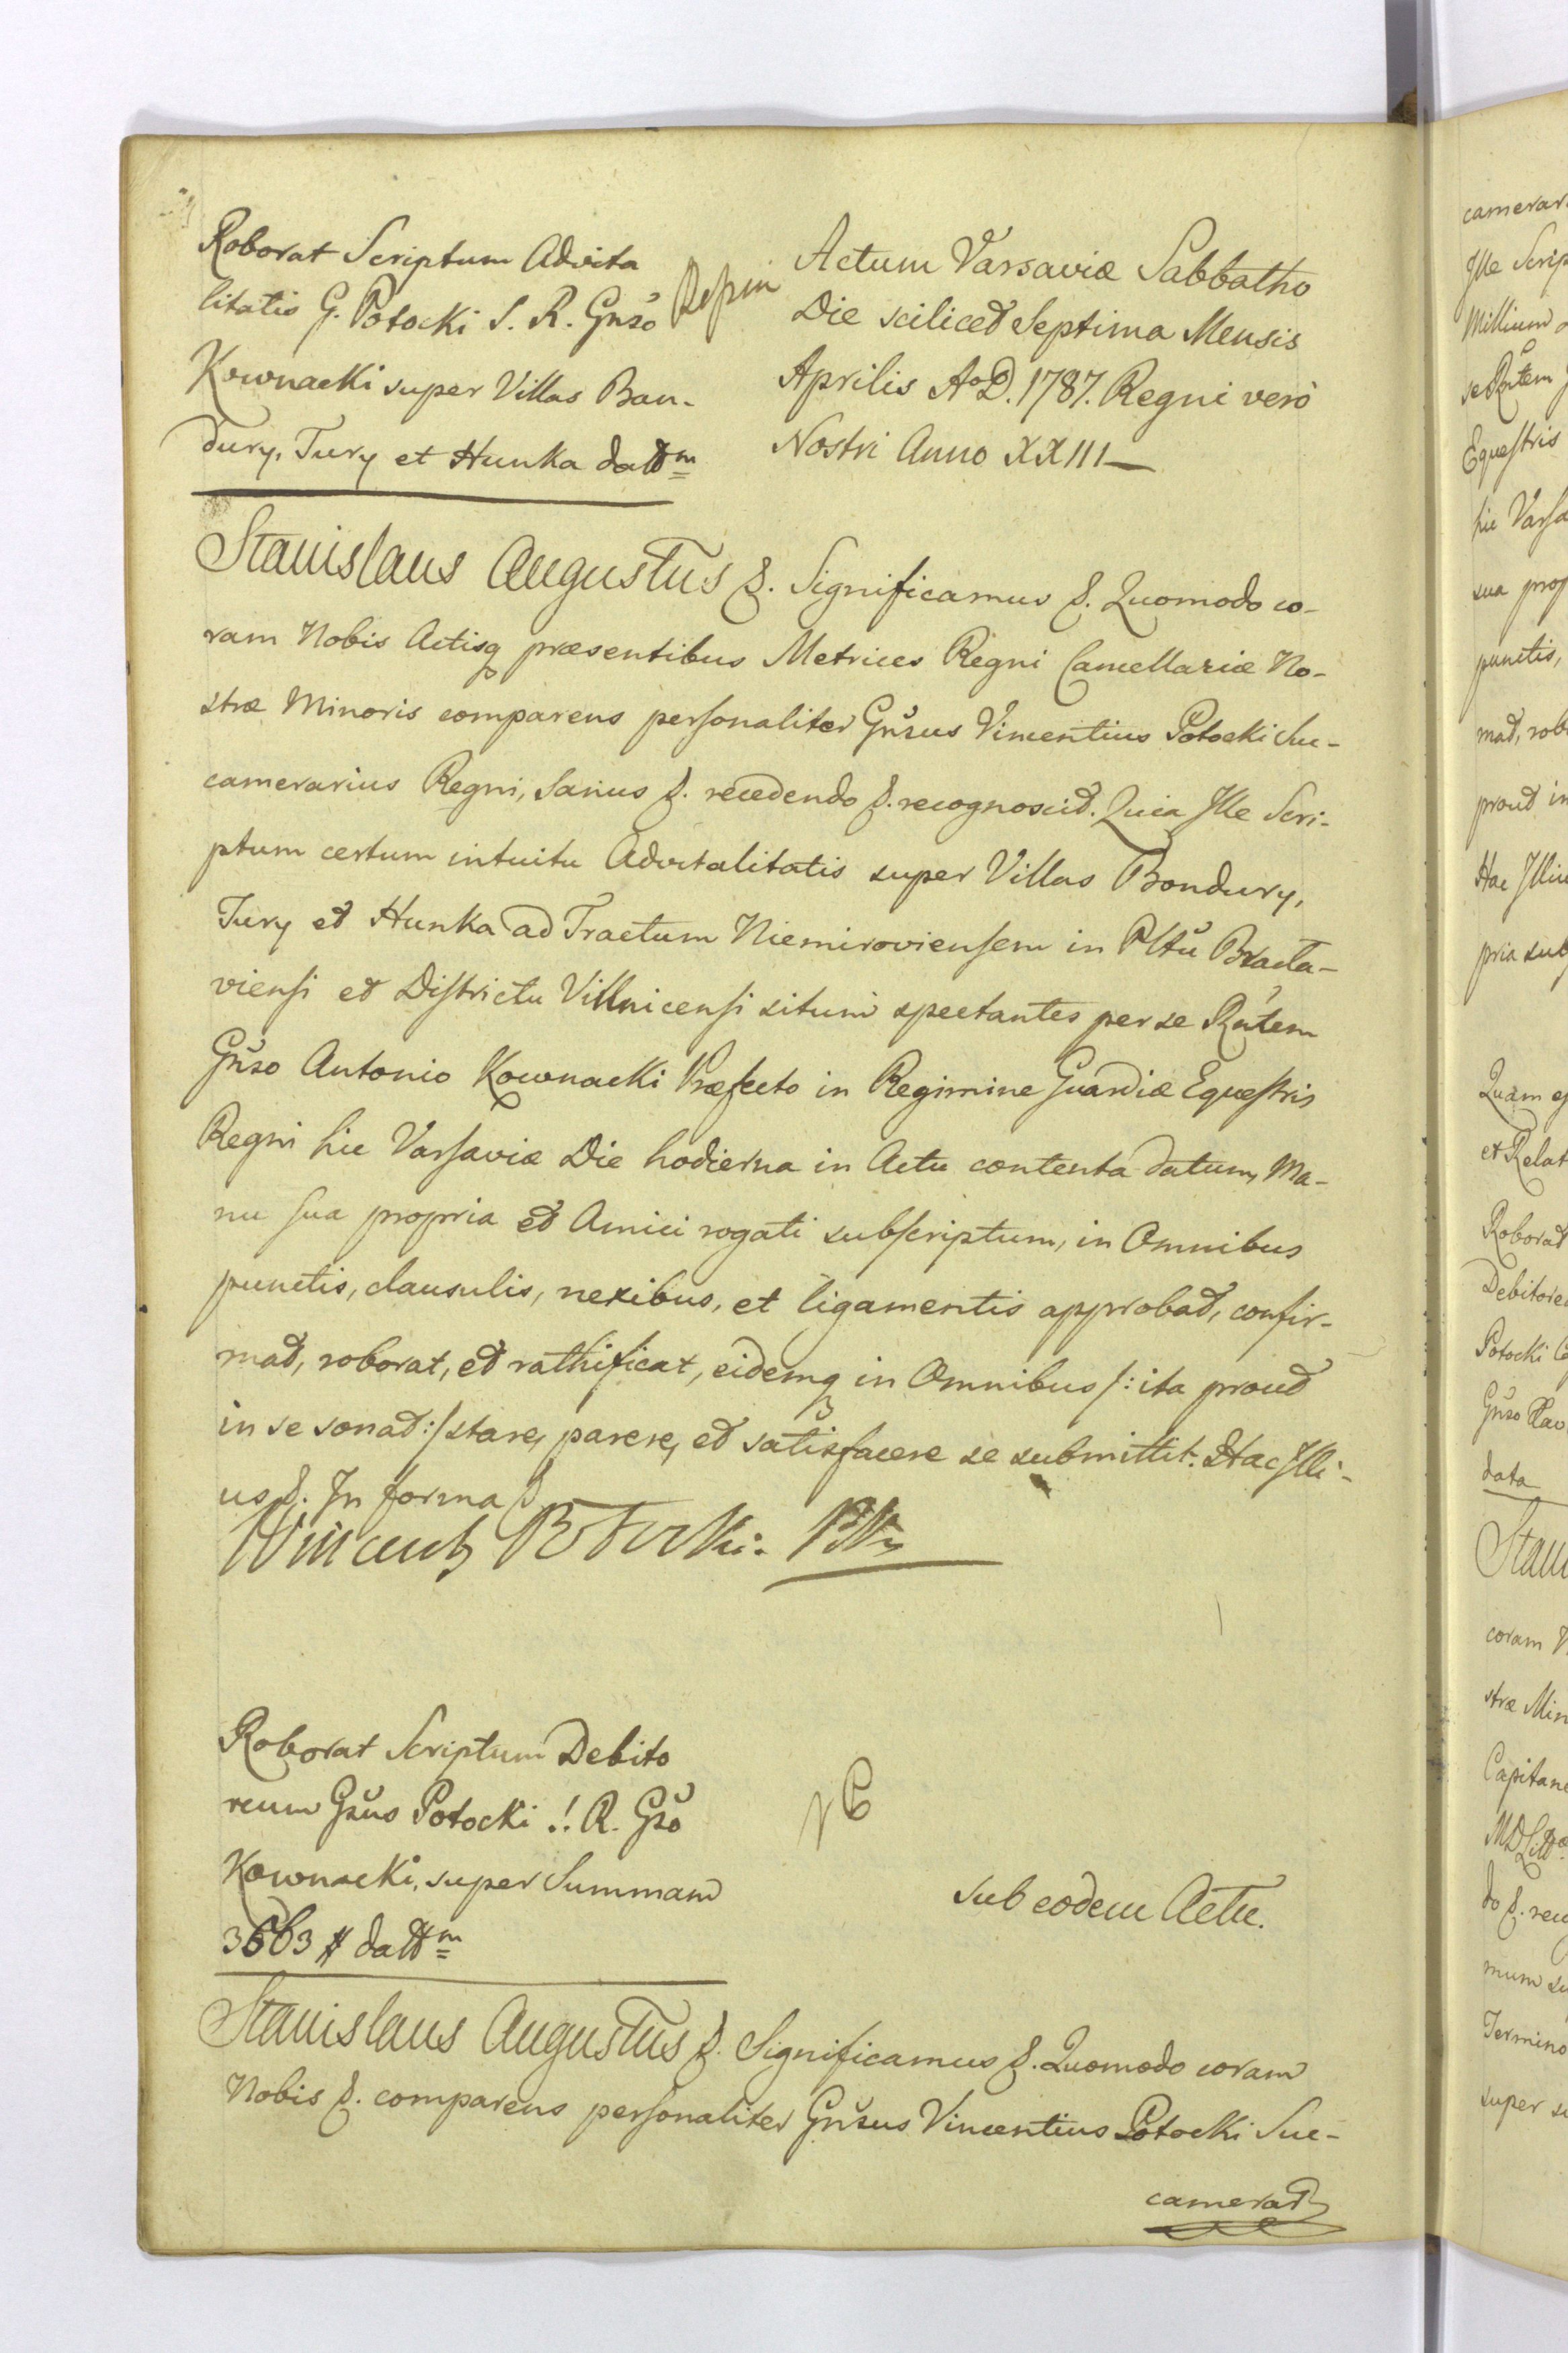 Roborat Scriptum Advita
litatis G. Potocki S. R. Gnšo
Kownacki super Villas Ban-
dury, Tury et Hunka datt^m
Actum Varsaviæ Sabbatho
Die scilicet Septima Mensis
Aprilis A^o D. 1787. Regni verò
Nostri Anno XXIII
Stanislaus Augustus &. Significamus &. Quomodo co-
ram Nobis Actisq præsentibus Metrices Regni Cancellariæ No-
stræ Minoris comparens personaliter Gnšus Vincentius Potocki Suc-
camerarius Regni, Sanus &. recedendo &. recognoscit. Quia Ille Scri-
ptum certum intuitu Advitalitatis super Villas Bondury,
Tury et Hunka ad Tractum Niemiroviensem in Plttũ Bracla-
viensi et Districtu Villnicensi situm spectantes per se Rñtem
Gnšo Antonio Kownacki Præfecto in Regimine Guardiæ Equestris
Regni hic Varsaviæ Die hodierna in Actu contenta datum, Ma-
nu sua propria et Amici rogati subscriptum, in Omnibus
punctis, clausulis, nexibus, et ligamentis approbat, confir-
mat, roborat, et rathificat, eidemq in Omnibus /: ita prout
in se sonat :/ stare, parere, et satisfacere se submittit. Hac Illi-
us &. In forma &
Wincenty Potocki.
Roborat Scriptum Debito
reum Gsũs Potocki S. R. Gšo
Kownacki, super Summam
3663 # datt^m
Sub eodem Actu.
Stanislaus Augustus &. Significamus &. Quomodo coram
Nobis &. comparens personaliter Gnšus Vincentius Potocki Suc-
camerar
camerar
Ille Scrip
Millium
se Rñtem
Equestris
hic Varsa
sua prop
punctis,
mat, rob
prout in
Hac Illiu
pria sub
Quam
et Relat
Roborat
Debitore
Potocki
Gnšo
data
Stani
coram
stræ Min
Capitane
do &. rec
mum
Termino
super